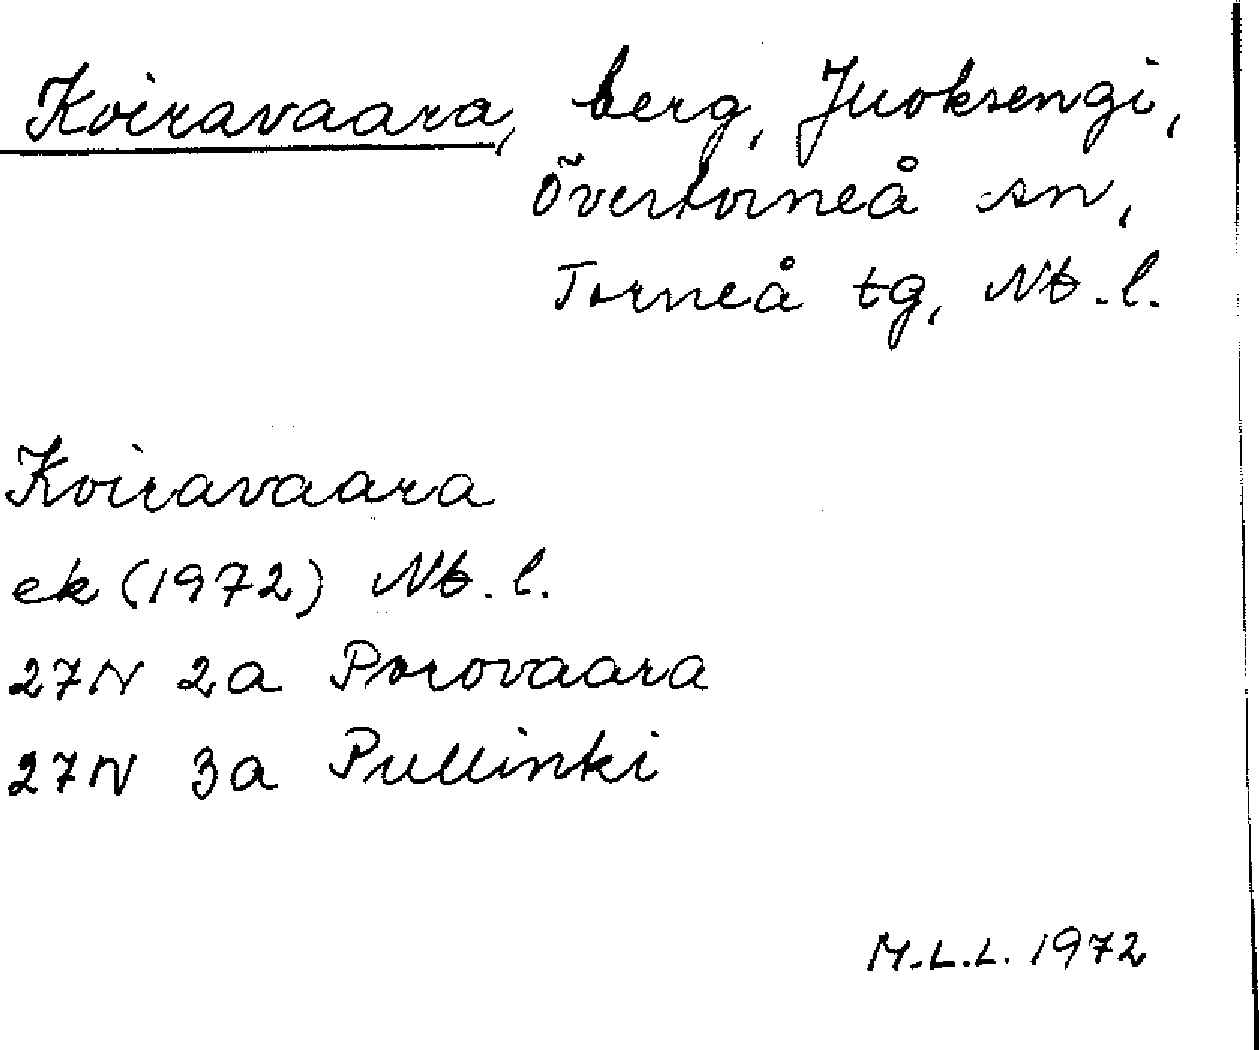 Koiravaara, berg, Juoksengi,
Övertorneå sn,
Torneå tg, Nb.l.
Koiravaara
ek (1972) Nb.l.
27N 2a Porovaara
27N 3a Pullinki
M.L.L. 1972